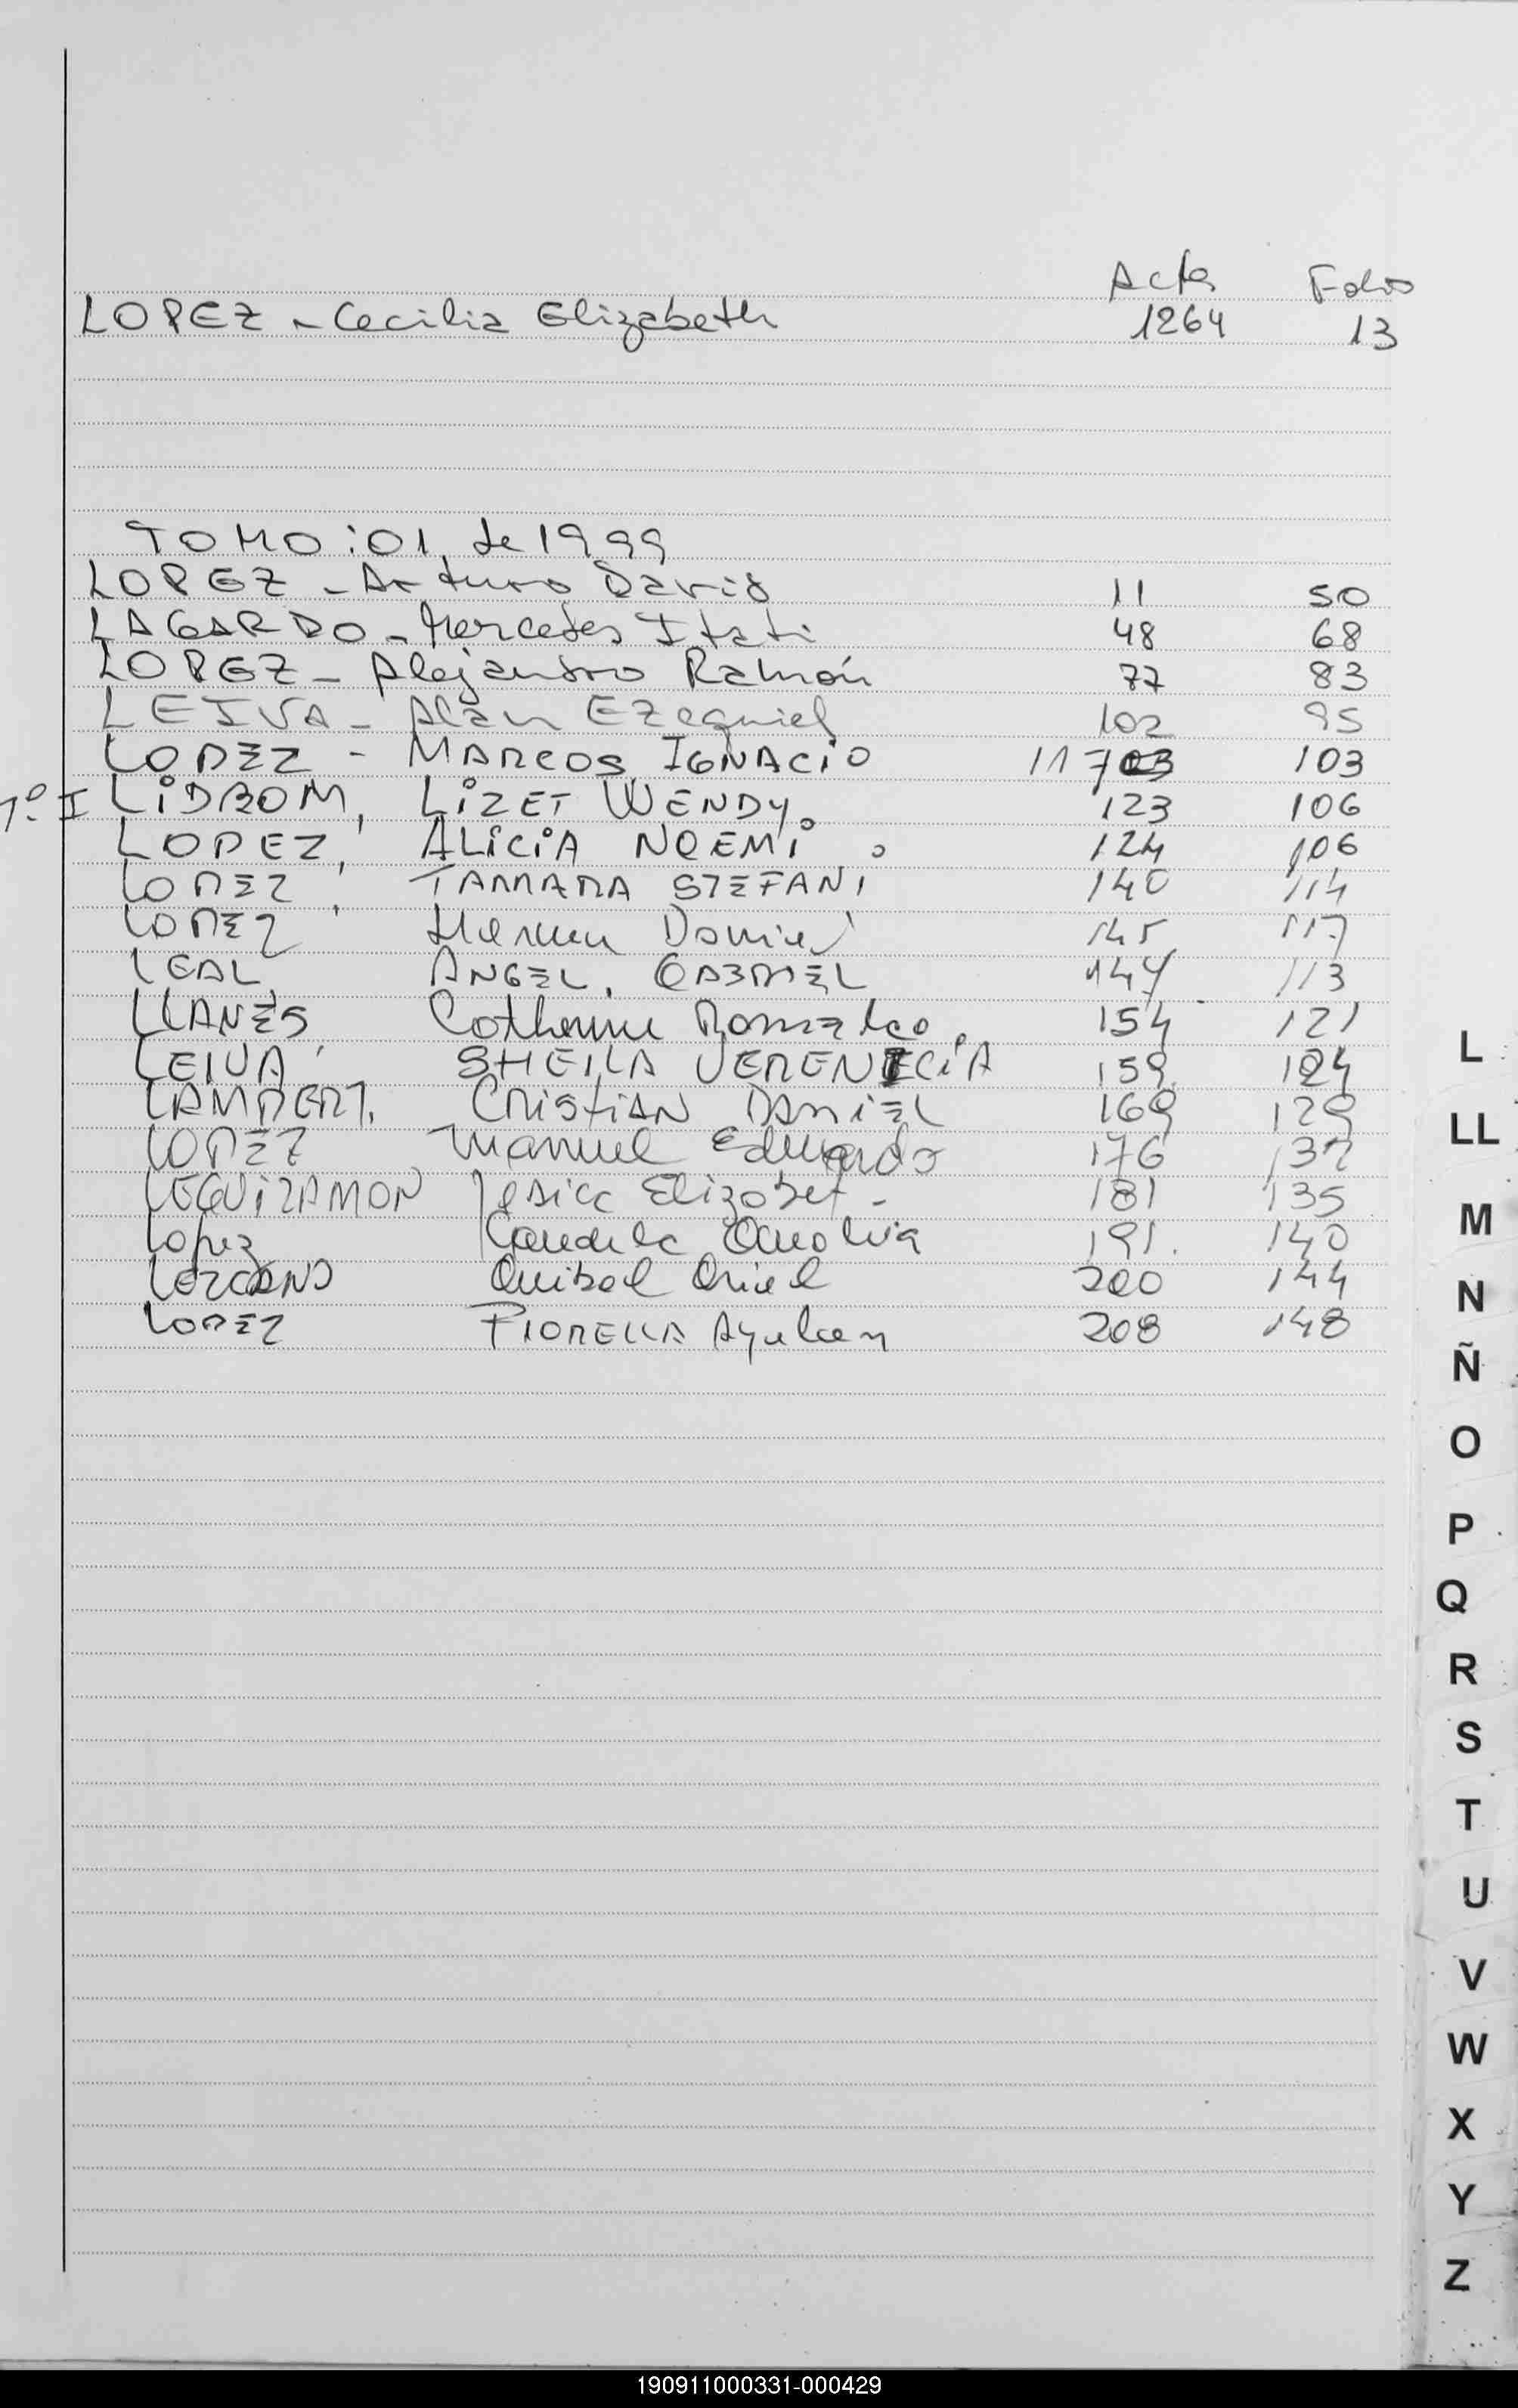 Acta Folio
LOPEZ - Cecilia Elizabeth 1264 13
TOMO: 01 de 1999
LOPEZ - Arturo David 11 50
LAGARDO - Mercedes Itati 48 68
LOPEZ - Alejandro Ramón 77 83
LEIVA - Alan Ezequiel 102 95
LOPEZ - MARCOS IGNACIO 117 103
1º I LIDBOM, LIZET WENDY. 123 106
LOPEZ, ALICIA NOEMI 124 106
LOPEZ, TAMARA STEFANI 140 114
LOPEZ, Hernan Daniel 145 117
LEAL, ANGEL, GABRIEL 147 113
LLANES, 154 121
LEIVA, SHEILA VERENICIA 159 124
LAMBERT, CRISTIAN DANIEL 169 129
LOPEZ Manuel Eduardo 176 132
LEGUIZAMON Jesica Elizabet - 181 135
Lopez Candela 191. 140
LEZCANO Anibal Ariel 200 144
LOPEZ FIORELLA Ayelen 208 148
L
LL
M
N
Ñ
O
P
Q
R
S
T
U
V
W
X
Y
Z
190911000331-000429